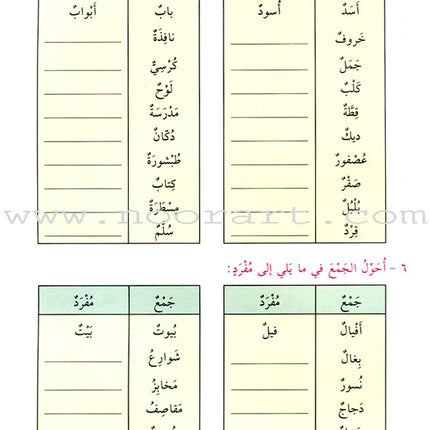 أَسَدٌ أُسودٌ
خَروفٌ
جَمَلٌ
كَلْبٌ
قِطَّةٌ
ديكٌ
عُصْفورٌ
صَقْرٌ
بُلْبُلٌ
قِرْدٌ
بابٌ أَبْوابٌ
نافِذَةٌ
كُرْسِيٌّ
لَوْحٌ
مَدْرَسَةٌ
دُكّانٌ
طَبْشورَةٌ
كِتابٌ
مِسْطَرَةٌ
سُلَّمٌ
www.noorart.com
٦ - أُحَوِّلُ الجَمْعَ في ما يَلي إلى مُفْرَدٍ:
جَمْعٌ مُفْرَدٌ
أَفْيالٌ فيلٌ
بِغالٌ
نُسورٌ
دَجاجٌ
جَمْعٌ مُفْرَدٌ
بُيوتٌ بَيْتٌ
شَوارِعُ
مَخابِزُ
مَقاصِفُ